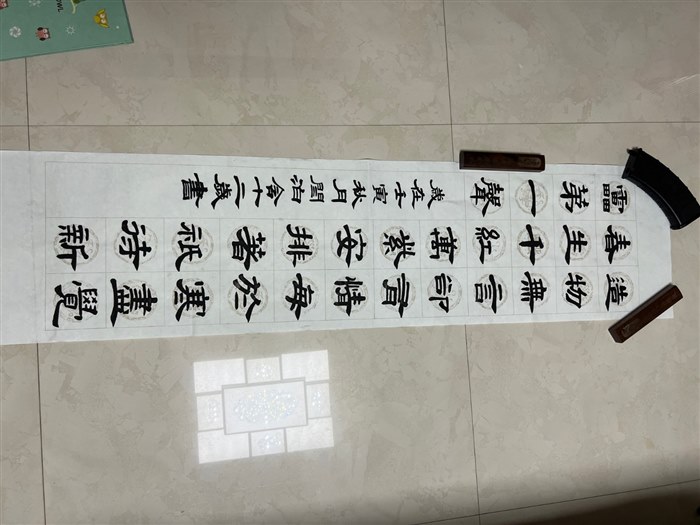 造物無言卻有情每於寒盡覺
春生千紅萬紫安排著祇待新
靁弟一聲
歲在壬寅秋月閆泊含十三歲書